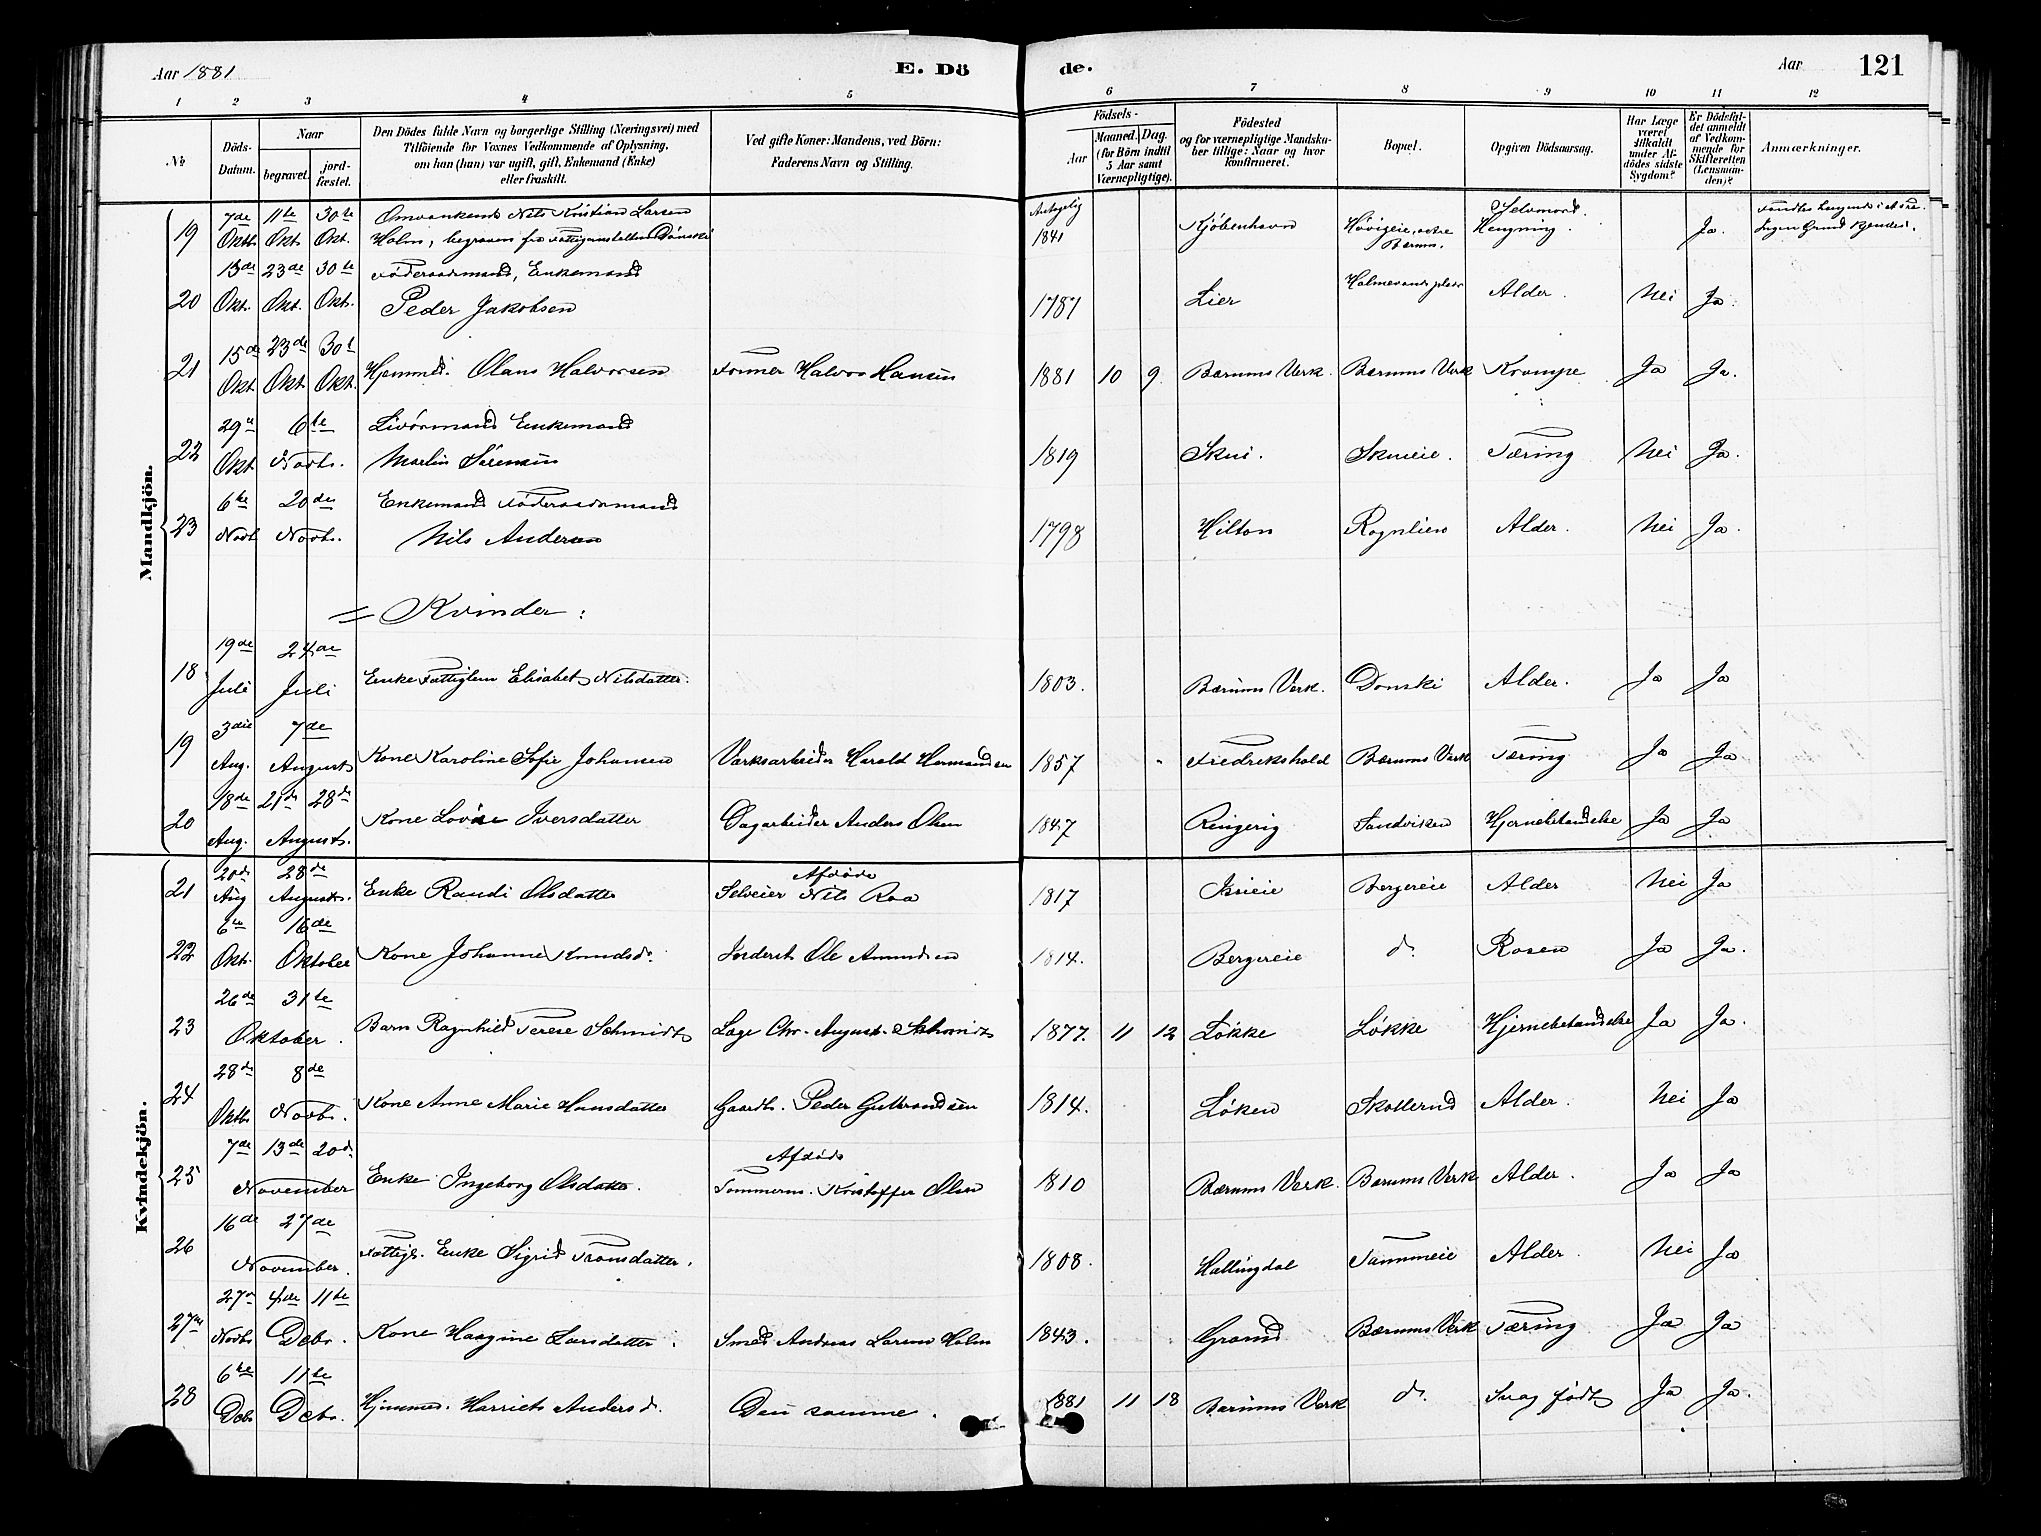 Aar 1881
E. Dö
de.
Aar
121
1 2 3 4 5 6 7 8 9 10 11 12
№
Döds-Datum.
Naar
begravet.
jord-fæstet.
Den Dödes fulde Navn og borgerlige Stilling (Næringsvei) med
Tilföiende for Voxnes Vedkommende af Oplysning,
om han (hun) var ugift, gift, Enkemand (Enke)
eller fraskilt.
Ved gifte Koner: Mandens, ved Börn:
Faderens Navn og Stilling.
Födsels-
Aar
Maaned.
Dag.
(for Börn indtil
5 Aar samt
Værnepligtige).
Födested
og for værnepligtige Mandska-
ber tillige: Naar og hvor
konfirmeret.
Bopæl.
Opgiven Dödsaarsag.
Har Læge
været
tilkaldt
under Af-
dödes sidste
Sygdom?
Er Dödsfal-
det anmeldt
af Vedkom-
mende for
Skifteretten
(Lensman-
den)?
Anmærkninger.
Mandkjön.
19 7de Oktb. 11te Okt. 30te Okt. Omvankende Nils Kristian Larsen
Holm, begraven fra Fattiganstalten Dønski Antagelig 1841 Kjøbenhavn Høvigeie, Bærum. Selvmord. Hængning. Ja. Fandtes hængende i
Ingen Grund kjendes.
20 13de Okt. 23de Okt. 30te Okt. Føderaadsmand, Enkemand
Peder Jakobsen 1787 Lier Alder. Nei Ja.
21 15de Okt. 23de Okt. 30t Okt. Hjemmed. Olaus Halvorsen Former Halvor Hansen 1881 10 9 Bærums Verk. Bærums Verk Krampe Ja Ja.
22 29e Okt. 6te Novb. Livørmand Enkemand
Martin Sørensen 1819 Skui. Skuieie. Tæring Nei Ja.
23 6te Novb. 20de Novb. Enkemand Føderaadsmand
Nils Andersen 1798 Hilton Rognlien Alder. Nei Ja.
= Kvinder:
18 19de Juli 24de Juli Enke Fattiglem Elisabet Nilsdatter. 1803. Bærums Verk. Donski Alder. Ja Ja
19 3die Aug. 7de August Kone Karoline Sofie Johansen Verksarbeider Harald Hermansen 1857 Fredrikshald Bærums Verk Tæring Ja Ja
20 18de Aug. 21de 28de August. Kone Lovise Iversdatter Dagarbeider Anders Olsen 1847 Ringerig Sandviken Hjernebetændelse Ja Ja
Kvindekjön.
21 20de Aug 28de August. Enke Randi Olsdatter Afdøde
Selveier Nils Roa 1817 Isieie Bergereie Alder Nei Ja
22 6te Okt. 16de Oktober Kone Johanne Knudsd. Inderst Ole Amundsen 1814. Bergereie do. Rosen Ja Ja.
23 26de 31te Oktober. Barn Ragnhild Terese Schmidt Læge Chr. August Schmidt 1877. 11 12 Løkke Løkke Hjernebetændelse Ja Ja.
24 28de Oktb 8de Novb. Kone Anne Marie Hansdatter Gaardb. Peder Gulbrandsen 1814. Løken Skollerud Alder. Nei Ja
25 7de 13de 20de November Enke Ingeborg Olsdatter. Afdøde
Tømmerm. Kristoffer Olsen 1810 Bærums Verk. Bærums Verk Alder. Ja Ja
26 16de 27de November. Fattigl. Enke Sigrid Tronsdatter. 1808. Hallingdal Tannumeie Alder. Nei Ja
27 27de Novb. 4de 11te Debr. Kone Haagine Larsdatter. Smed Andreas Larsen Holm 1843. Grand Bærums Verk Tæring Ja Ja
28 6te Debr 11te Debr. Hjemmed. Harriet Andersd. Den samme. 1881 11 18 Bærums Verk do. Svag født Ja Ja.